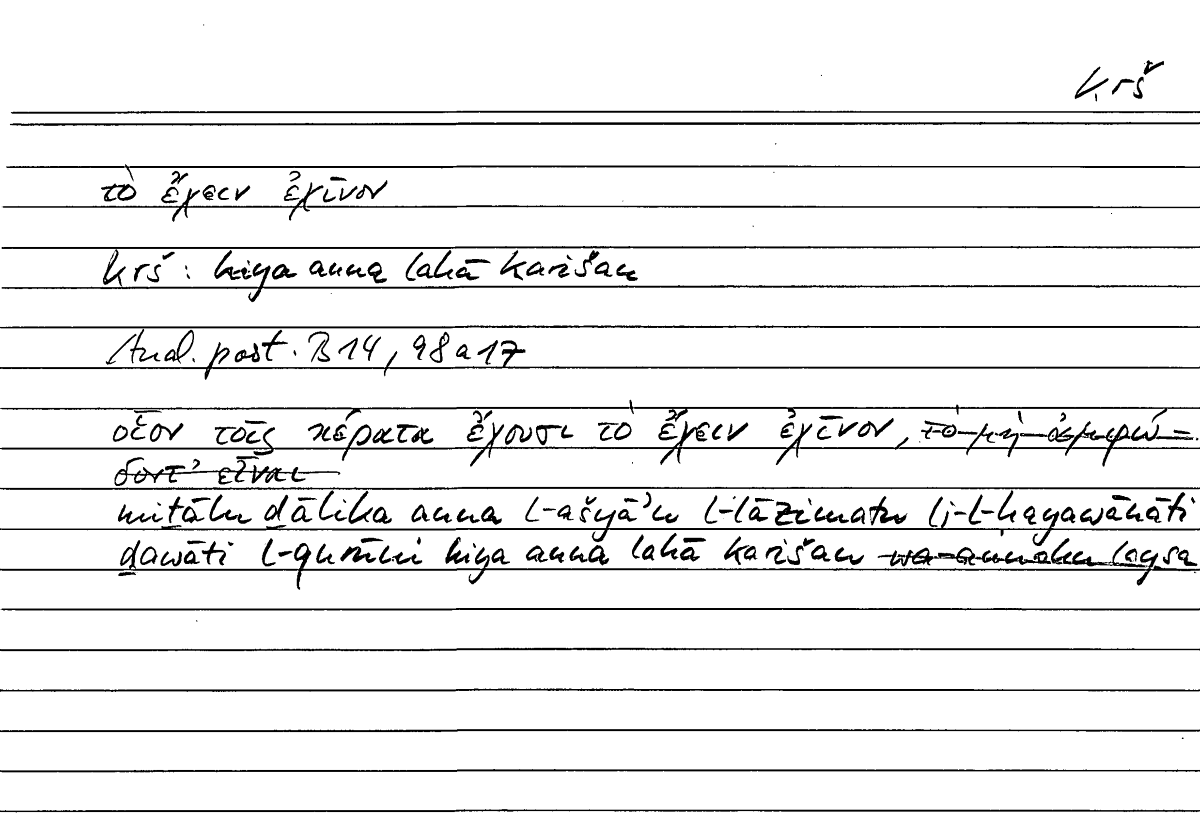 krš
τὸ ἔχειν ἐχῖνον
krš : hiya anna lahā karišan
Anal. post. B 14, 98 a 17
οἷον τοῖς κέρατα ἔχουσι τὸ ἔχειν ἐχῖνον, τὸ μὴ ἀμφώ=
δοντ’ εἶναι
miṯālu ḏālika anna l-ašyāʾu l-lāzimatu li-l-ḥayawānāti
ḏawāti l-qurūni hiya anna lahā karišan wa-annahu laysa